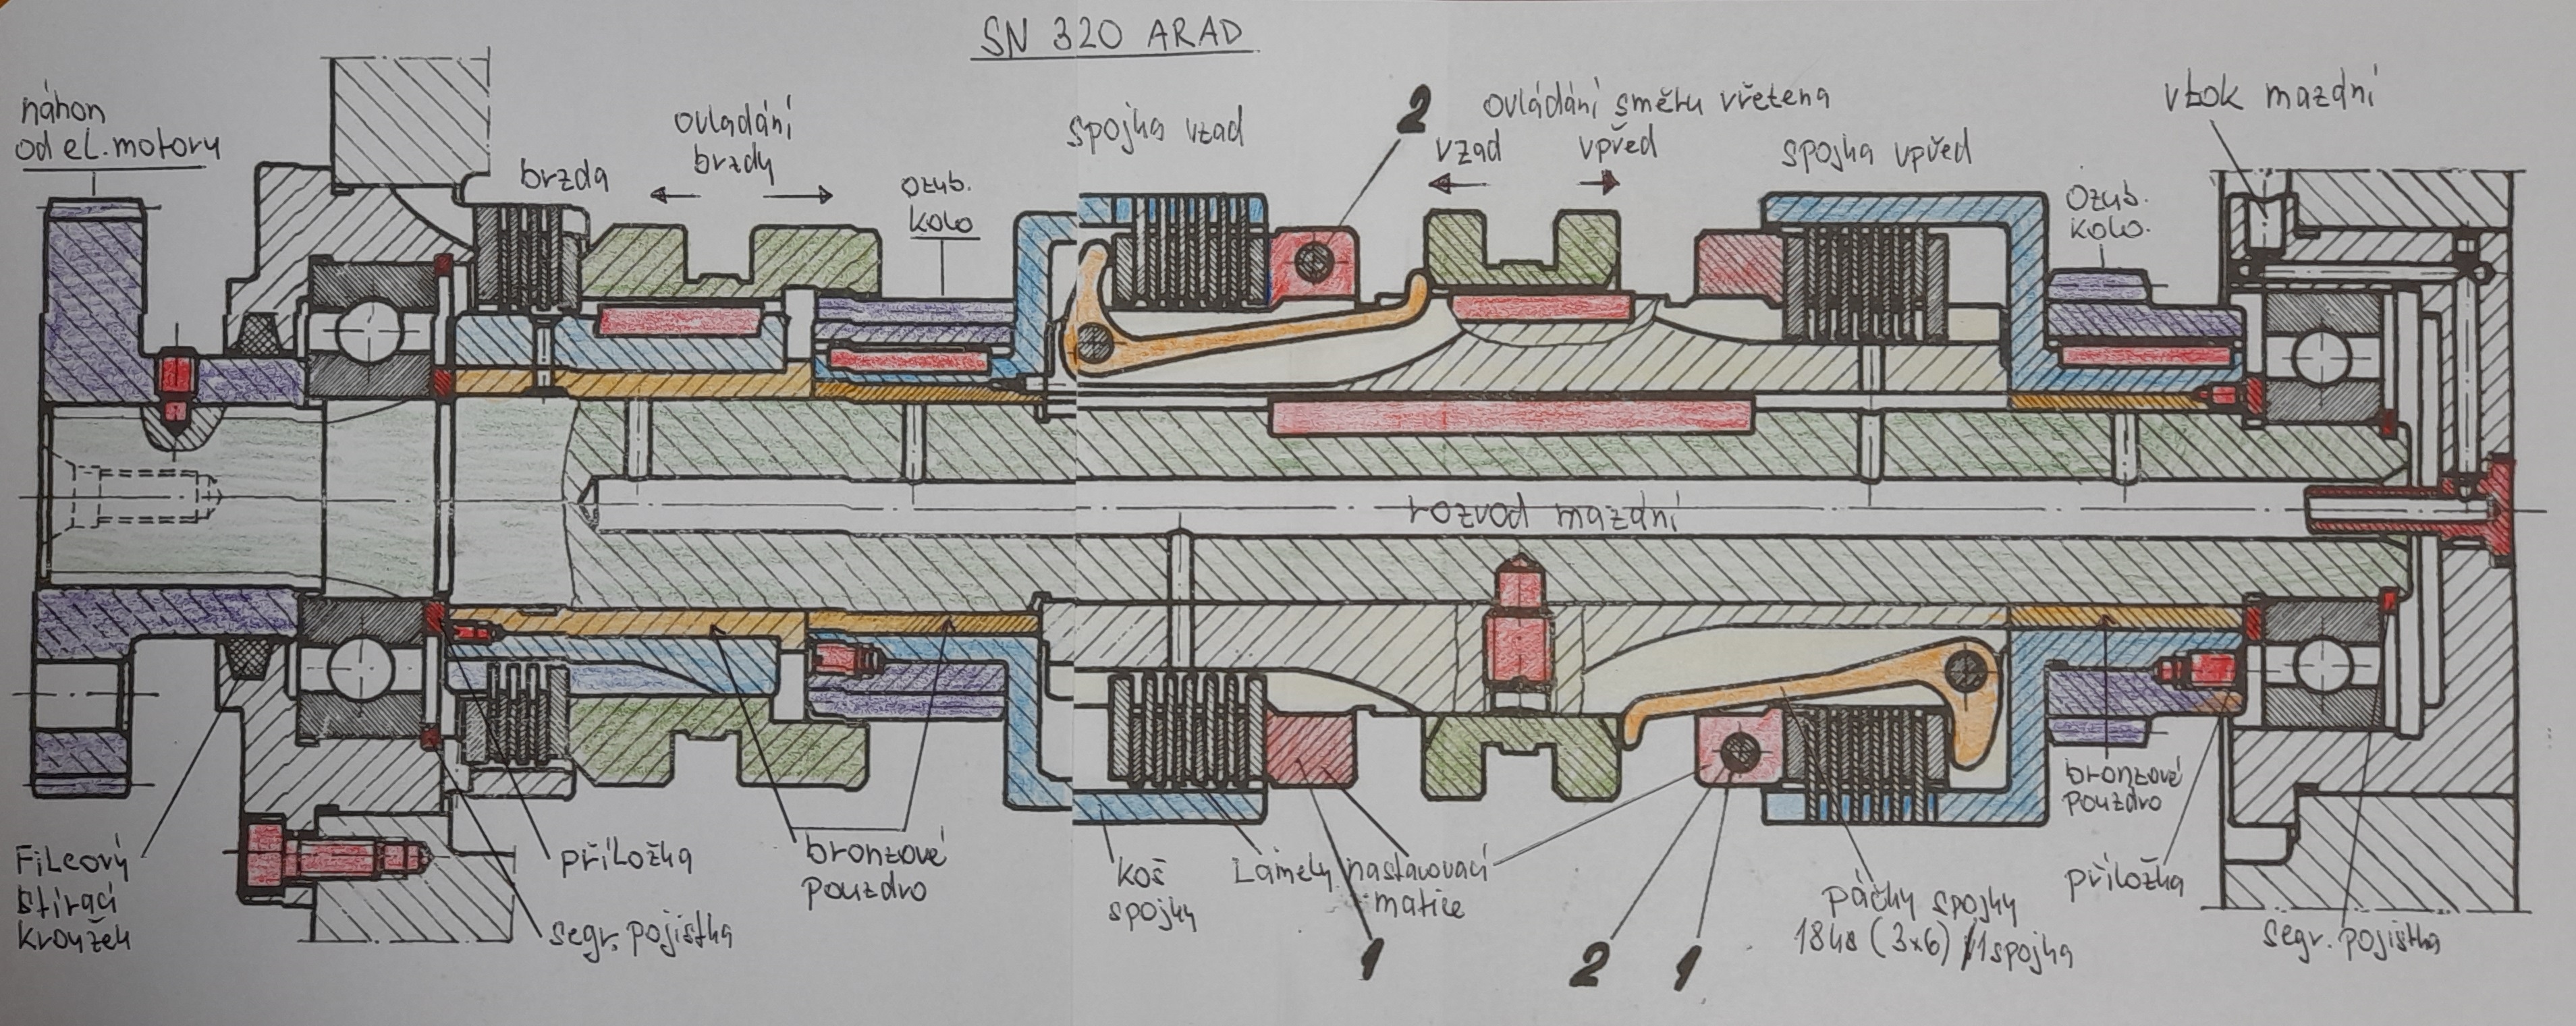 SN 320 ARAD
náhon
od el. motoru
brzda
ovladání
brzdy
ozub.
kolo
spojka vzad
2
ovládání směru vřetena
vzad
vpřed
spojka vpřed
Ozub.
kolo.
vtok mazání
rozvod mazání
Filcový
stírací
kroužek
příložka
segr. pojistka
bronzové
pouzdro
koš
spojky
Lamely
nastavovací
matice
1
2
1
páčky spojky
18ks (3x6) /1spojka
bronzové
pouzdro
příložka
segr. pojistka